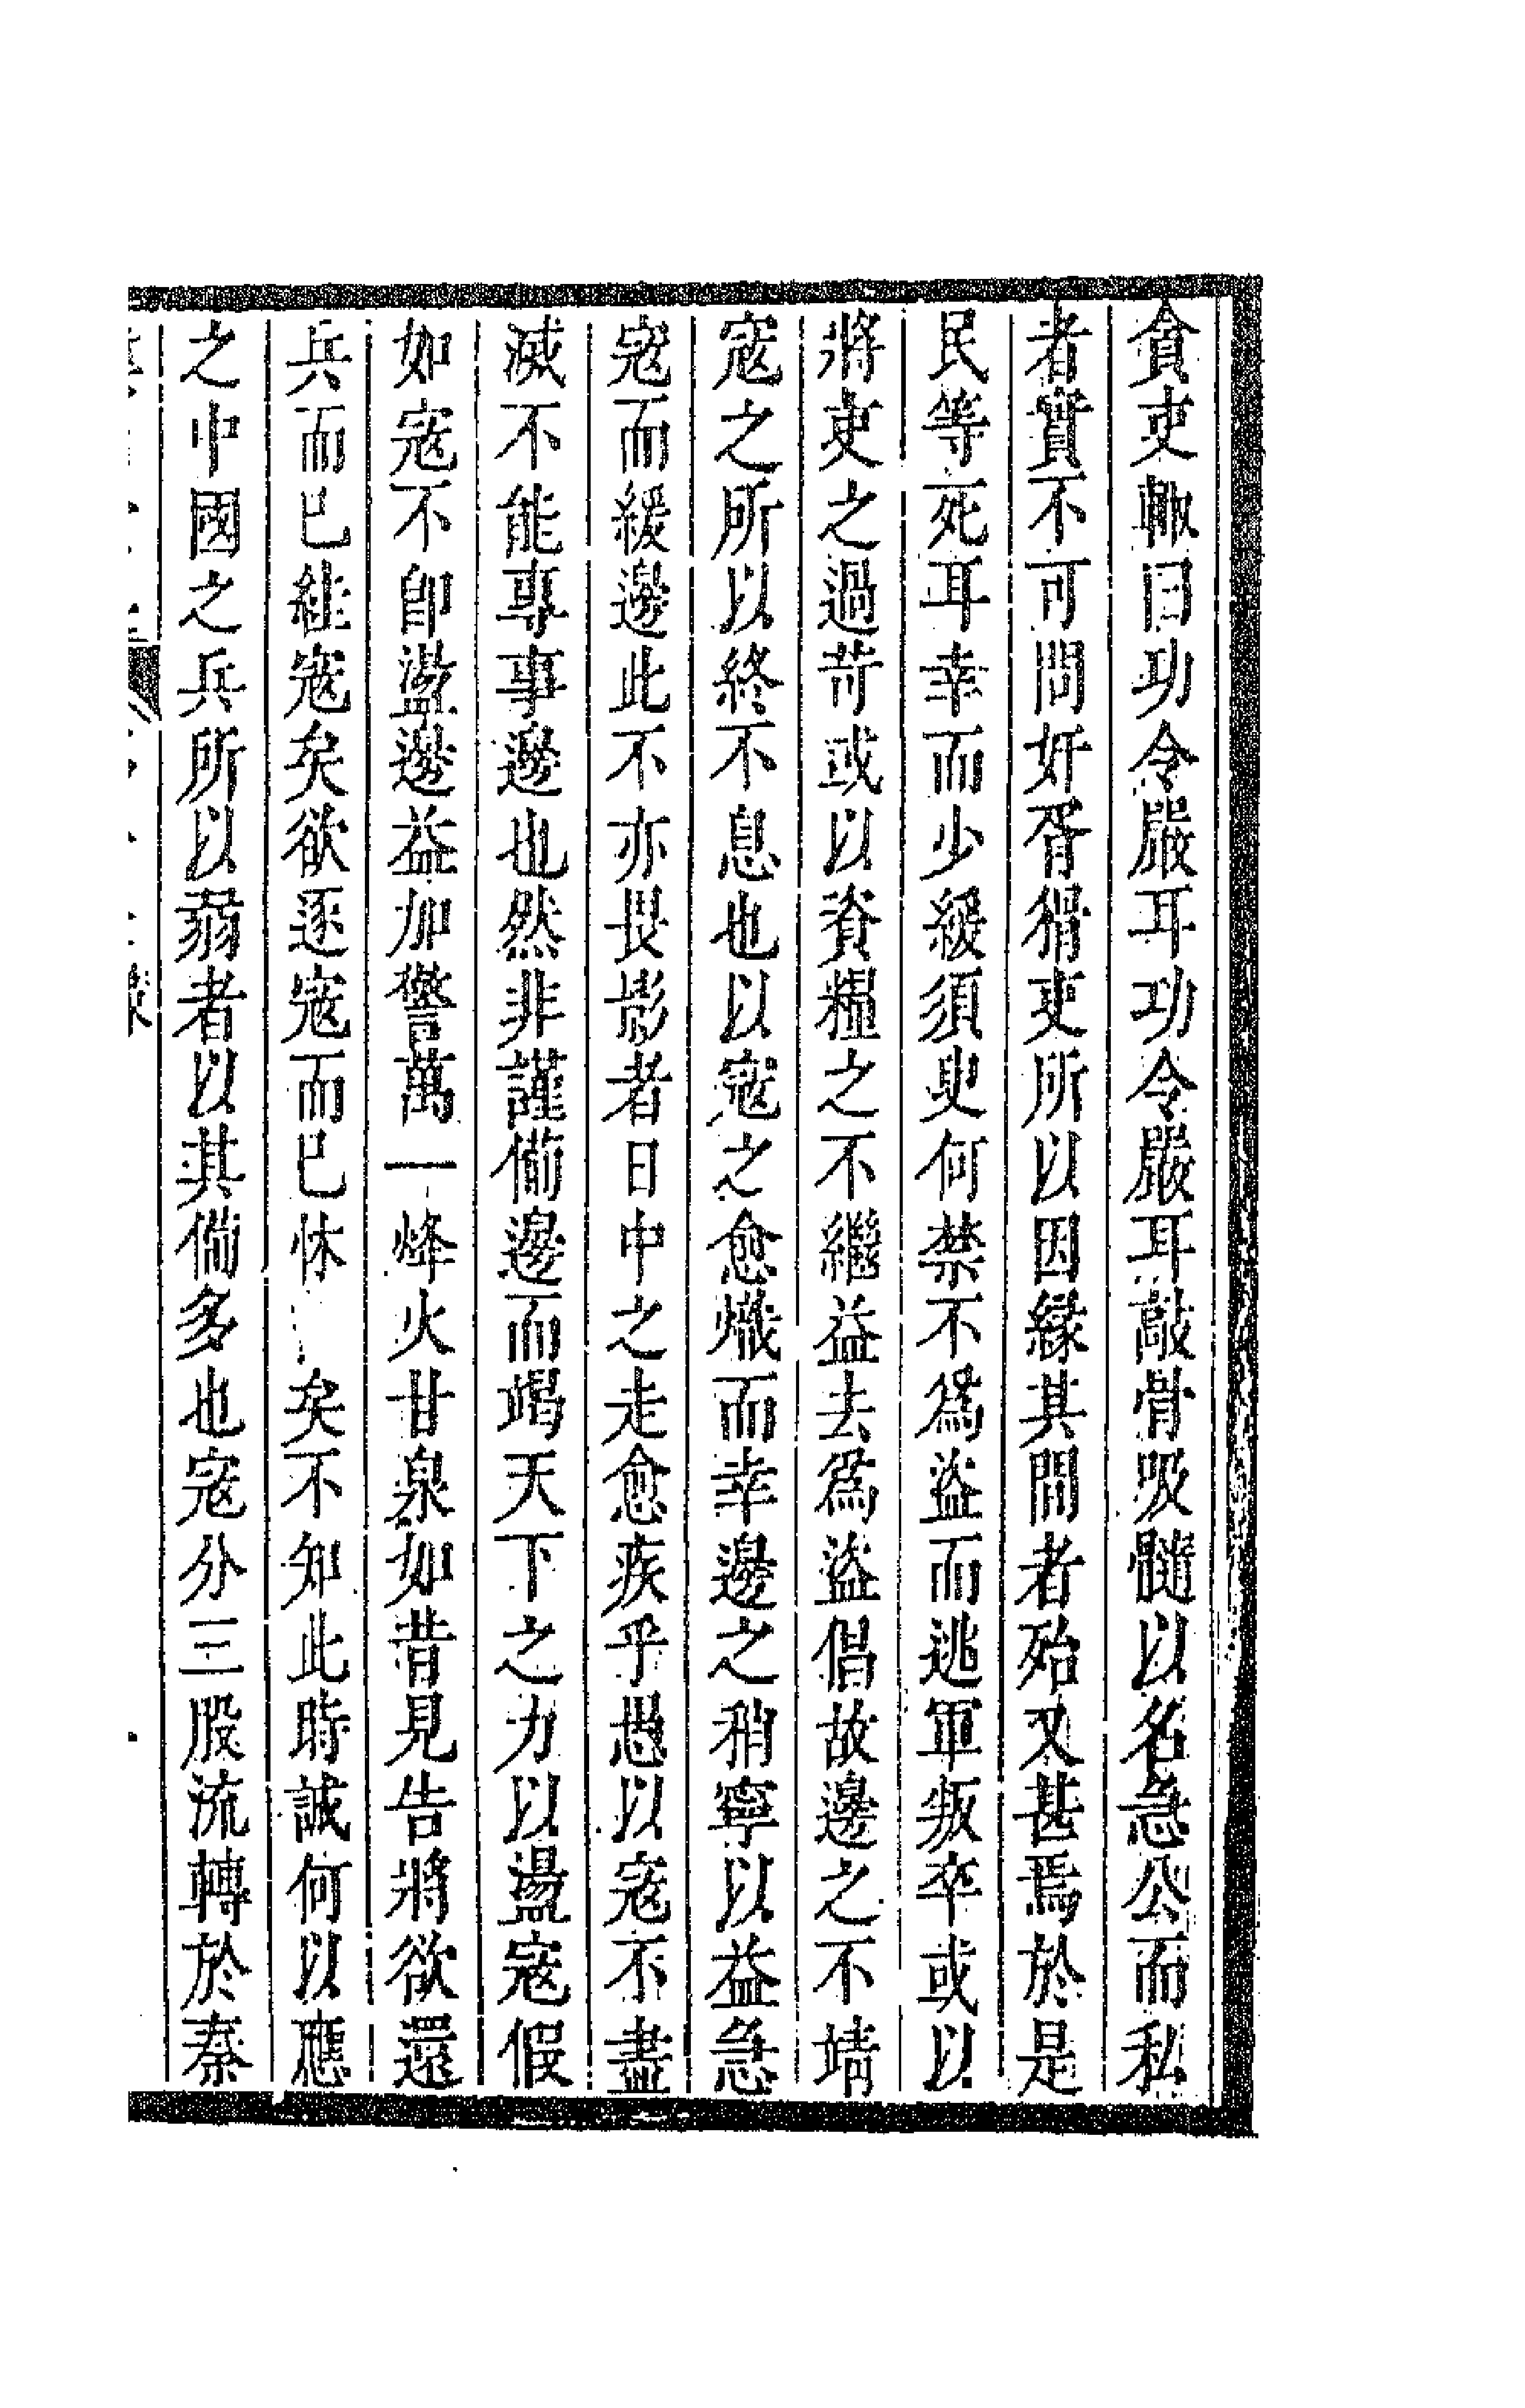 貪吏輙曰功令嚴耳功令嚴耳敲骨吸髓以名急公而私
者實不可問奸胥猾吏所以因緣其間者殆又甚焉於是
民等死耳幸而少緩須臾何禁不爲盜而逃軍叛卒或以
將吏之過苛或以資糧之不繼益去爲盜倡故邊之不靖
寇之所以終不息也以寇之愈熾而幸邊之稍寧以益急
寇而緩邊此不亦畏影者日中之走愈疾乎愚以寇不盡
滅不能專事邊也然非謹備邊而竭天下之力以盪寇假
如寇不卽盪邊益加警萬一烽火甘泉如昔見告將欲還
兵而已絓寇矣欲逐寇而已怵矣不知此時誠何以應
之中國之兵所以弱者以其備多也寇分三股流轉於秦